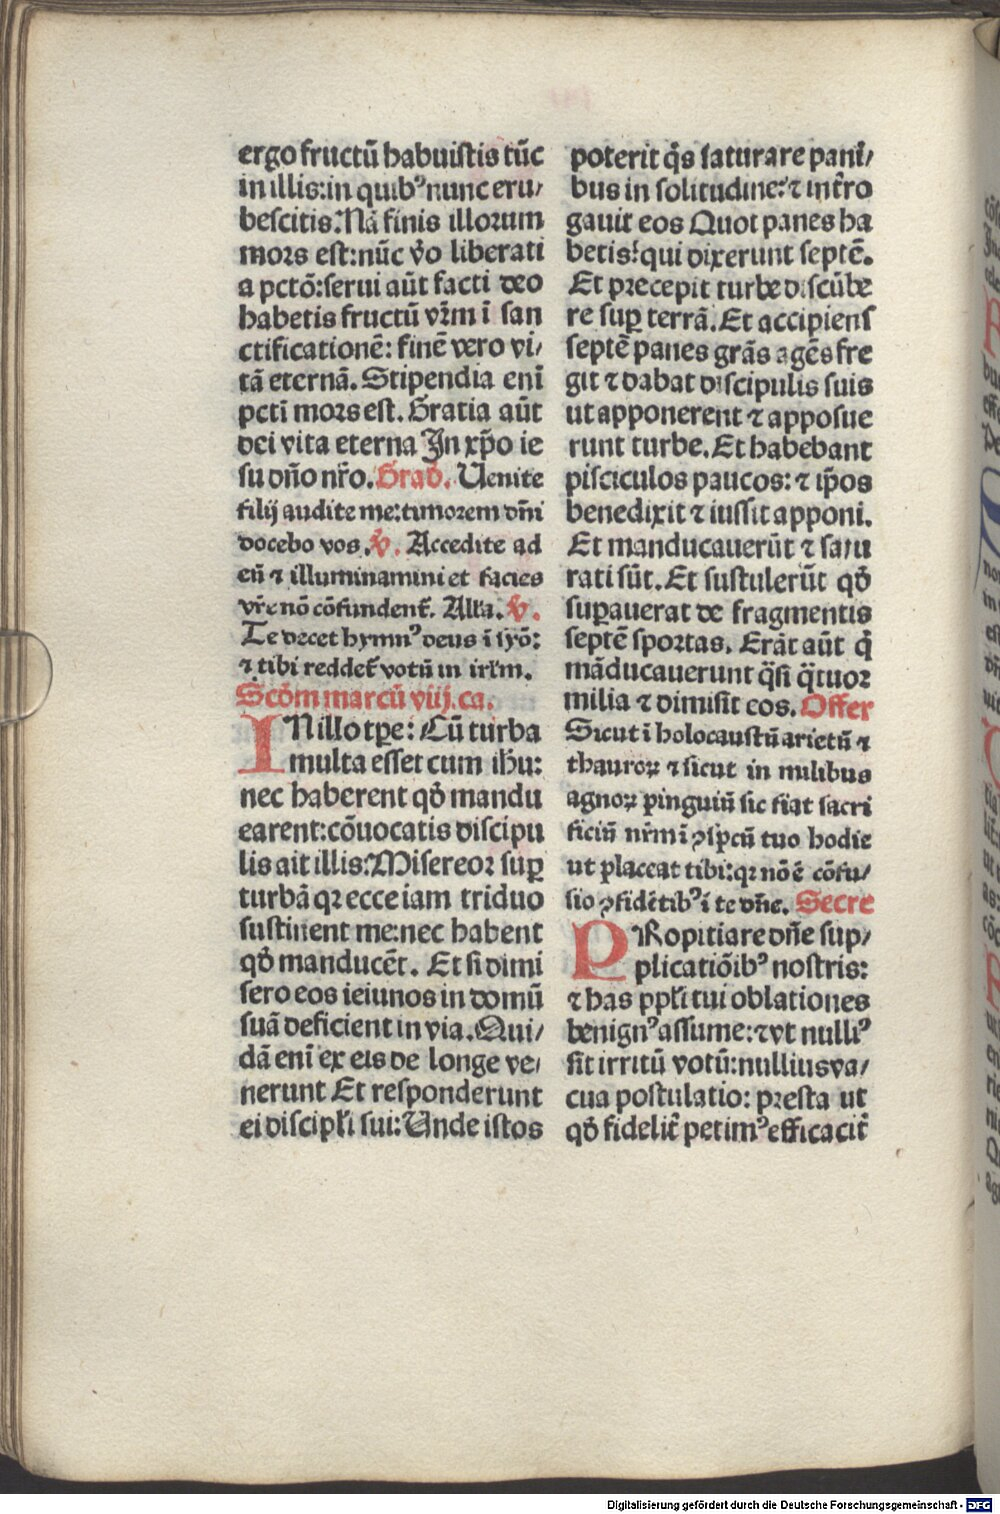 ergo fructũ habuistis tũc
in illis: in quibꝰ nunc eru/
bescitis. Nã finis illorum
mors est: nũc v̾o liberati
a pctõ: serui aũt facti deo
habetis fructũ vr̃m ĩ san
ctificationẽ: finẽ vero vi/
tã eternã. Stipendia enĩ
pcti mors est. Gratia aũt
dei vita eterna In xp̃o ie
su dño nr̃o. Grad̾. Uenite
filij audite me: timorem dñi
docebo vos. v̾. Accedite ad
eũ ⁊ illuminamini et facies
vr̃e nõ cõfundent̾. Alľa. v̾.
Te decet hymnꝰ deus ĩ syõ:
⁊ tibi reddet̾ votũ in irľm.
Scďm marcũ viij. ca.
IN illo tp̃e: Cũ turba
multa esset cum ihũ:
nec haberent qď mandu
carent: cõuocatis discipu
lis ait illis: Misereor suꝑ
turbã qꝛ ecce iam triduo
sustinent me: nec habent
qď manducẽt. Et si dimi
sero eos ieiunos in domũ
suã deficient in via. Qui/
dã enĩ ex eis de longe ve/
nerunt Et responderunt
ei discipľi sui: Unde istos
poterit q̃s saturare pani/
bus in solitudine: ⁊ int̾ro
gauit eos Quot panes ha
betis: qui dixerunt septẽ.
Et precepit turbe discũbe
re suꝑ terrã. Et accipiens
septẽ panes grãs agẽs fre
git ⁊ dabat discipulis suis
ut apponerent ⁊ apposue
runt turbe. Et habebant
pisciculos paucos: ⁊ ip̃os
benedixit ⁊ iussit apponi.
Et manducauerũt ⁊ satu
rati sũt. Et sustulerũt qď
suꝑauerat de fragmentis
septẽ sportas. Erãt aũt q̃
mãducauerunt q̃si q̃tuor
milia ⁊ dimisit eos. Offer
Sicut ĩ holocaustũ arietũ ⁊
thauroꝝ ⁊ sicut in milibus
agnoꝝ pinguiũ sic fiat sacri
ficiũ nr̃m ĩ ꝯspcũ tuo hodie
ut placeat tibi: qꝛ nõ ẽ cõfu/
sio ꝯfidẽtibꝰ ĩ te dñe. Secre
PRopitiare dñe sup/
plicatiõibꝰ nostris:
⁊ has ppľi tui oblationes
benignꝰ assume: ⁊ vt nulliꝰ
sit irritũ votũ: nullius va/
cua postulatio: presta ut
qď fidelit̾ petimꝰ efficacit̾
Digitalisierung gefördert durch die Deutsche Forschungsgemeinschaft - DFG